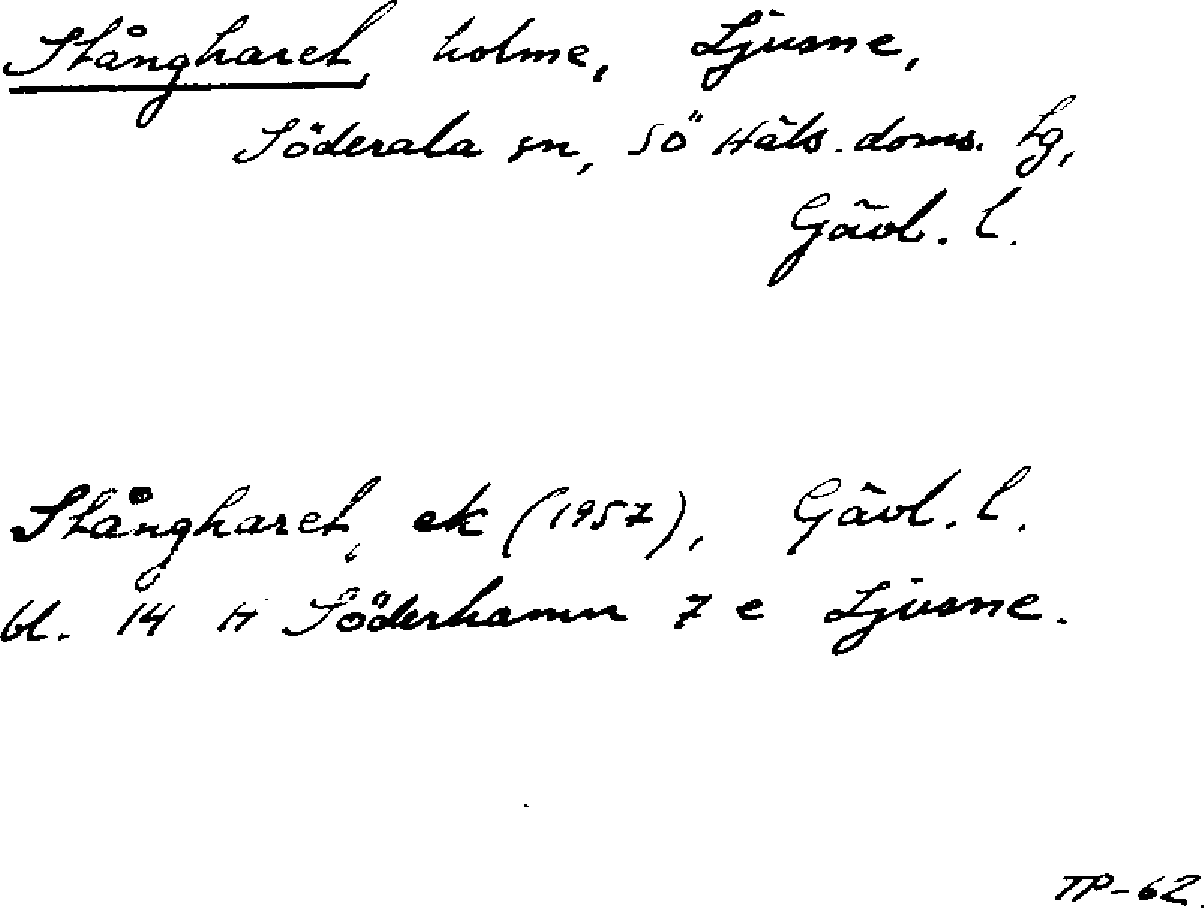 Stångharet, holme, Ljusne,
Söderala sn, SÖ Häls. doms. Lg,
Gävl. l.
Stångharet, ek (1957), Gävl. l.
bl. 14 H Söderhamn 7 e Ljusne.
TP-62.